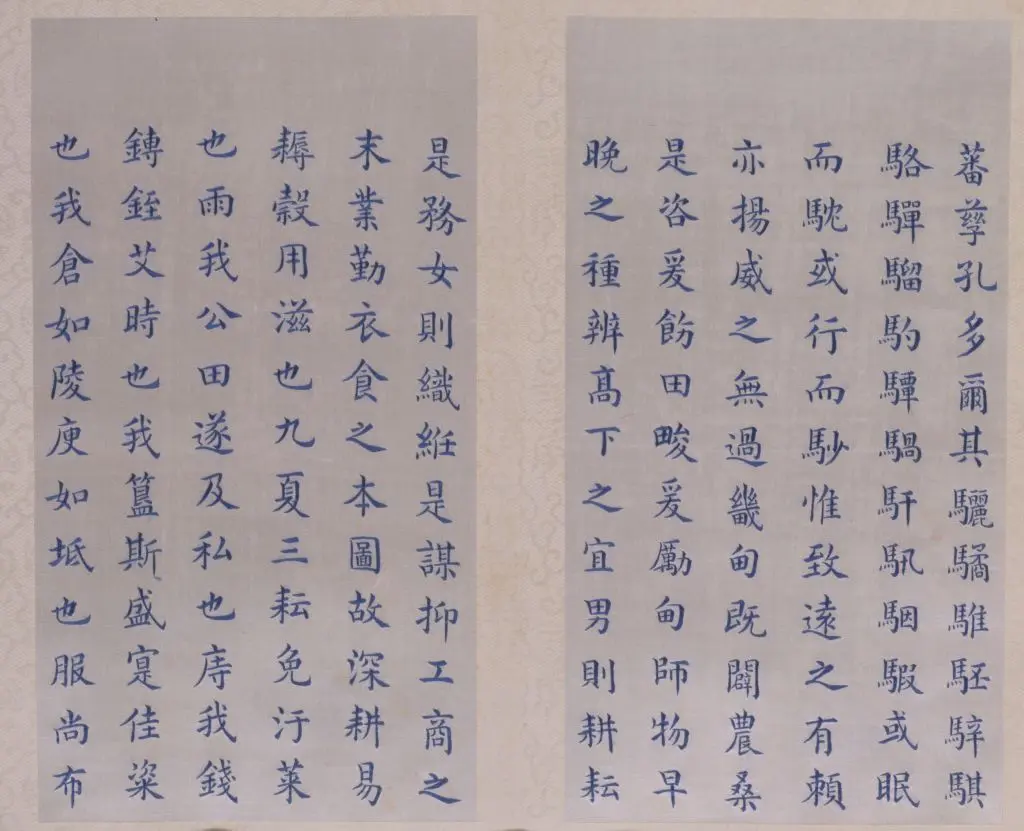 蕃孳孔多爾其驪驈騅駓騂騏
駱驒騮馰驔騧馯馻駰騢或眠
而馾或行而䮂惟致遠之有頼
亦揚威之無過畿甸既闢農桑
是咨爰飭田畯爰勵甸師物早
晚之種辨髙下之宜男則耕耘
是務女則織絍是謀抑工商之
末業勤衣食之本圖故深耕易
耨榖用滋也九夏三耘免汙萊
也雨我公田遂及私也庤我錢
鎛銍艾時也我簠斯盛寔佳粢
也我倉如陵庾如坻也服尚布